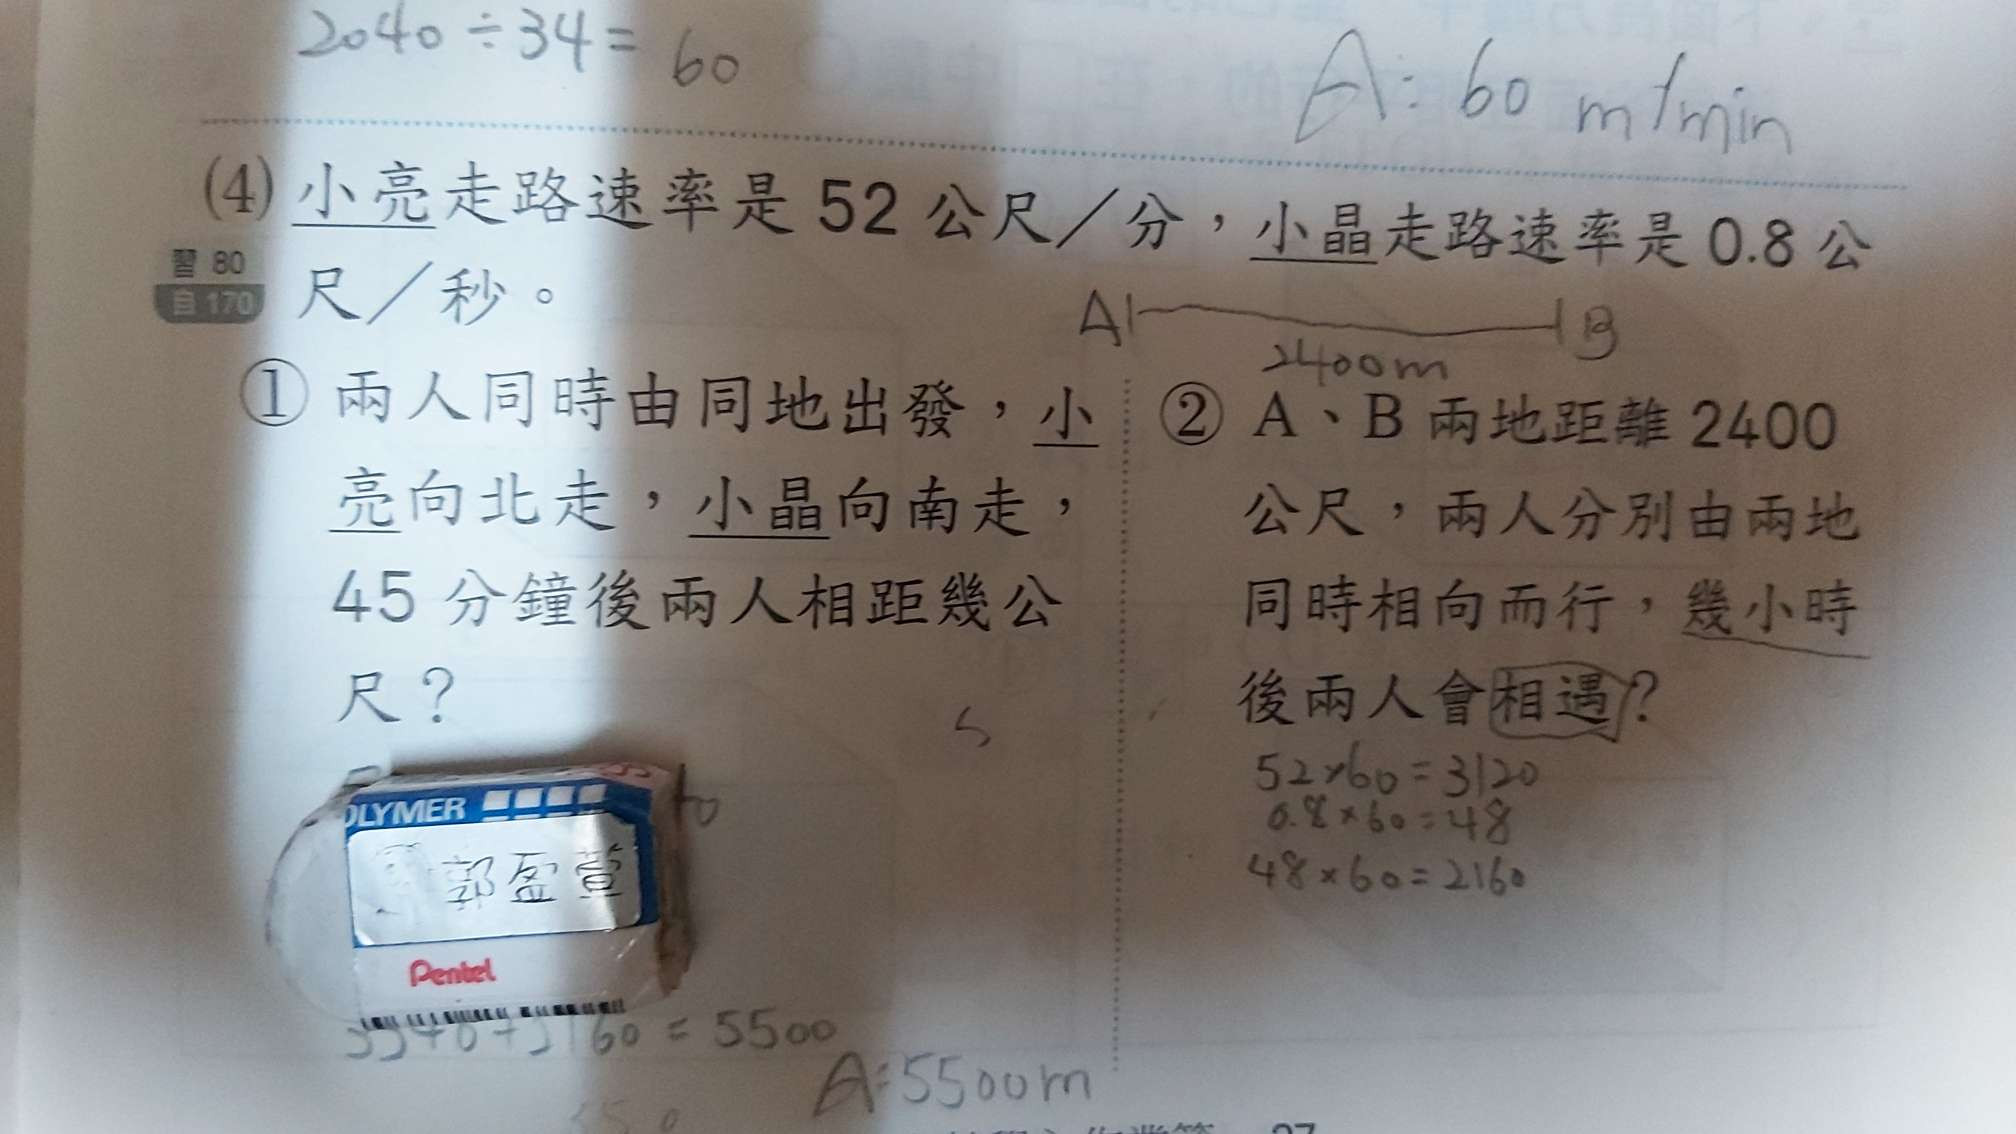 2040÷34=60
A:60 m/min
(4)小亮走路速率是52公尺／分，小晶走路速率是0.8公
習 80
自 170
尺／秒。
A B
2400m
①兩人同時由同地出發，小
亮向北走，小晶向南走，
45分鐘後兩人相距幾公
尺？
OLYMER
郭盈萱
Pentel
160=5500
A:5500m
②A、B兩地距離2400
公尺，兩人分別由兩地
同時相向而行，幾小時
後兩人會相遇？
52×60=3120
0.8×60=48
48×60=2160